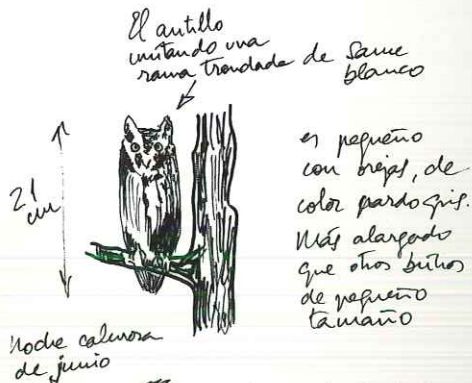 El autillo
imitando una
rama tronchada de Sauce
blanco
21
cm
es pequeño
con orejas, de
color pardo gris.
Más alargado
que otros búhos
de pequeño
tamaño
Noche calurosa
de junio